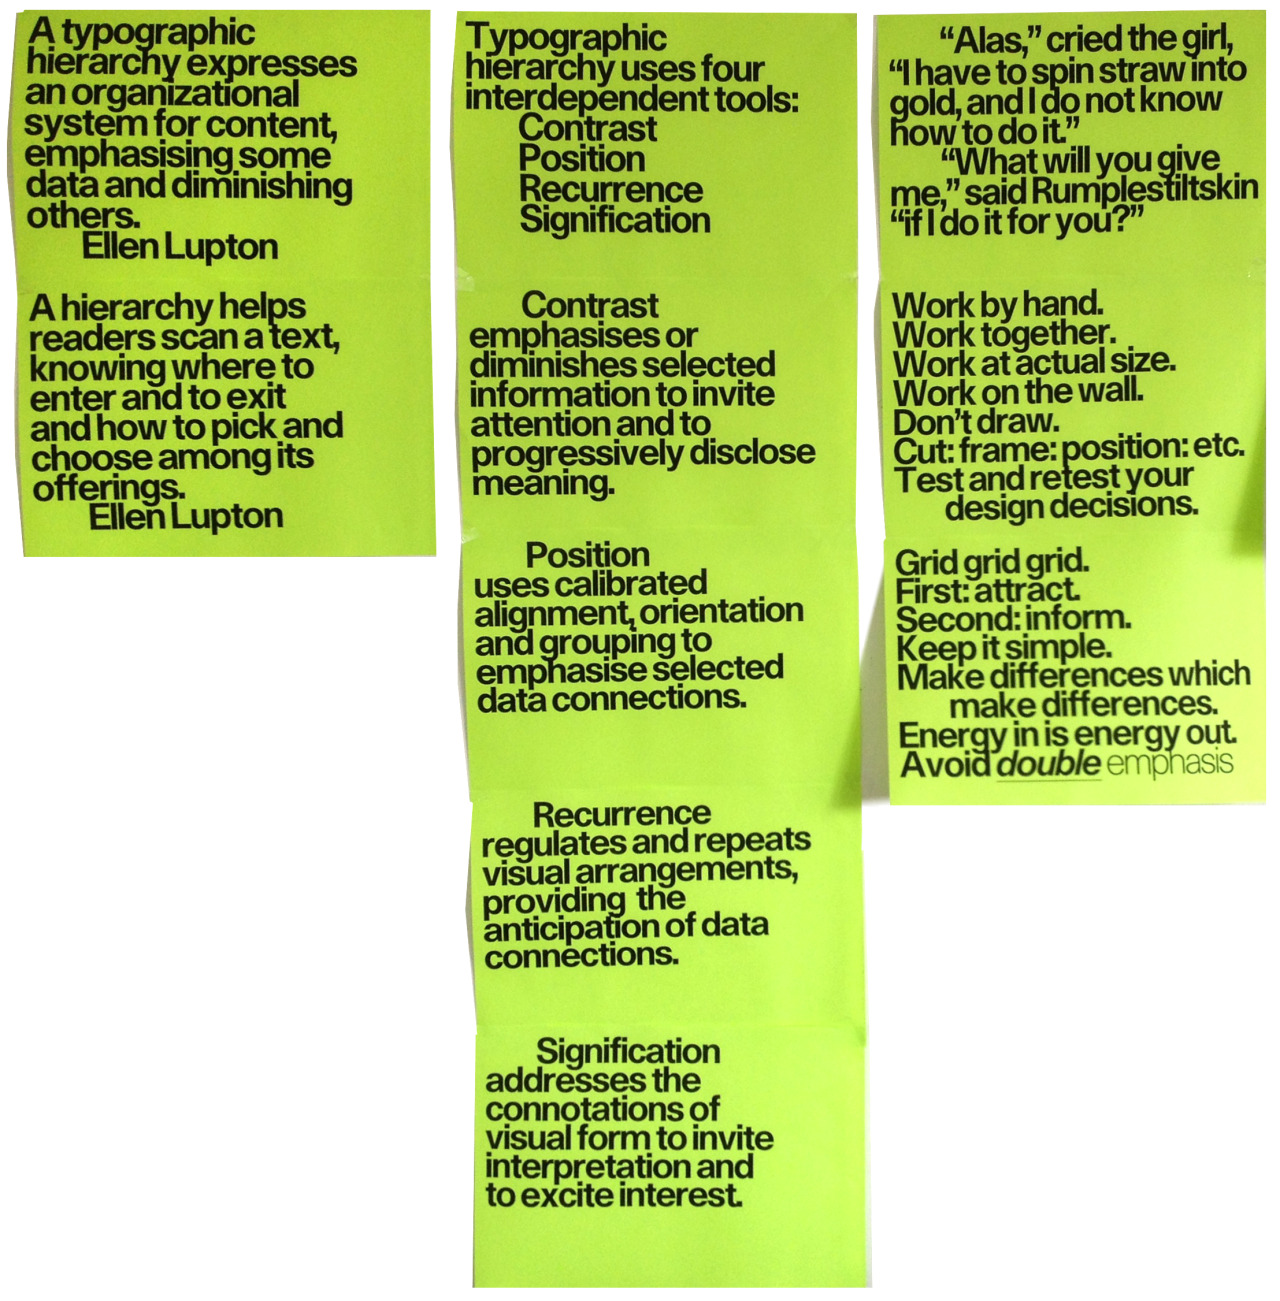 A typographic
hierarchy expresses
an organizational
system for content,
emphasising some
data and diminishing
others.
Ellen Lupton
A hierarchy helps
readers scan a text,
knowing where to
enter and to exit
and how to pick and
choose among its
offerings.
Ellen Lupton
Typographic
hierarchy uses four
interdependent tools:
Contrast
Position
Recurrence
Signification
Contrast
emphasises or
diminishes selected
information to invite
attention and to
progressively disclose
meaning.
Position
uses calibrated
alignment, orientation
and grouping to
emphasise selected
data connections.
Recurrence
regulates and repeats
visual arrangements,
providing the
anticipation of data
connections.
Signification
addresses the
connotations of
visual form to invite
interpretation and
to excite interest.
“Alas,” cried the girl,
“I have to spin straw into
gold, and I do not know
how to do it.”
“What will you give
me,” said Rumplestiltskin
“if I do it for you?”
Work by hand.
Work together.
Work at actual size.
Work on the wall.
Don’t draw.
Cut: frame: position: etc.
Test and retest your
design decisions.
Grid grid grid.
First: attract.
Second: inform.
Keep it simple.
Make differences which
make differences.
Energy in is energy out.
Avoid double emphasis